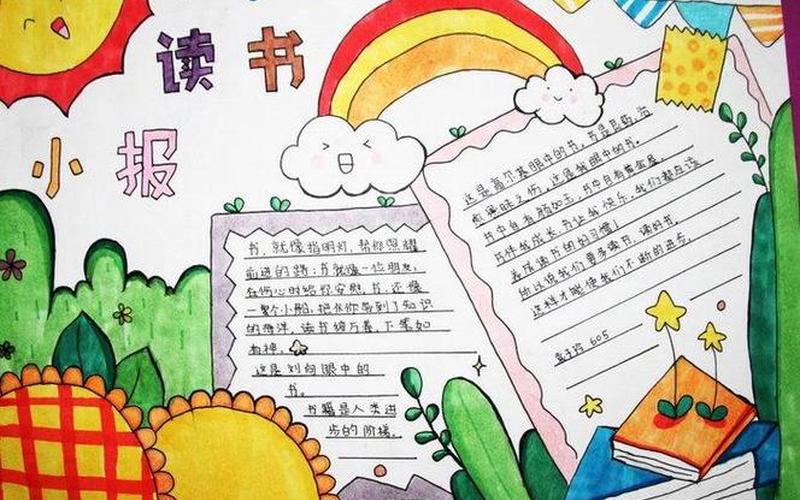 读书
小报
书，就像指明灯，帮你照耀
前进的路；书就像一位朋友，
在伤心时给你安慰，书，还像
一艘个小船，把在你带到了知识
的海洋，读书破万卷，下笔如
有神。
这是刘向眼中的
书。
书籍是人类进
步的阶梯。
这是高尔基眼中的书，书是良药，治
愈愚昧之伤，这是我眼中的书。
书中自有颜如玉，书中自有黄金屋，
书伴我成长，书让我快乐，我们都应该
养成读书的好习惯！
所以说我们要多读书，读好书。
这样才能使我们不断的进步。
605